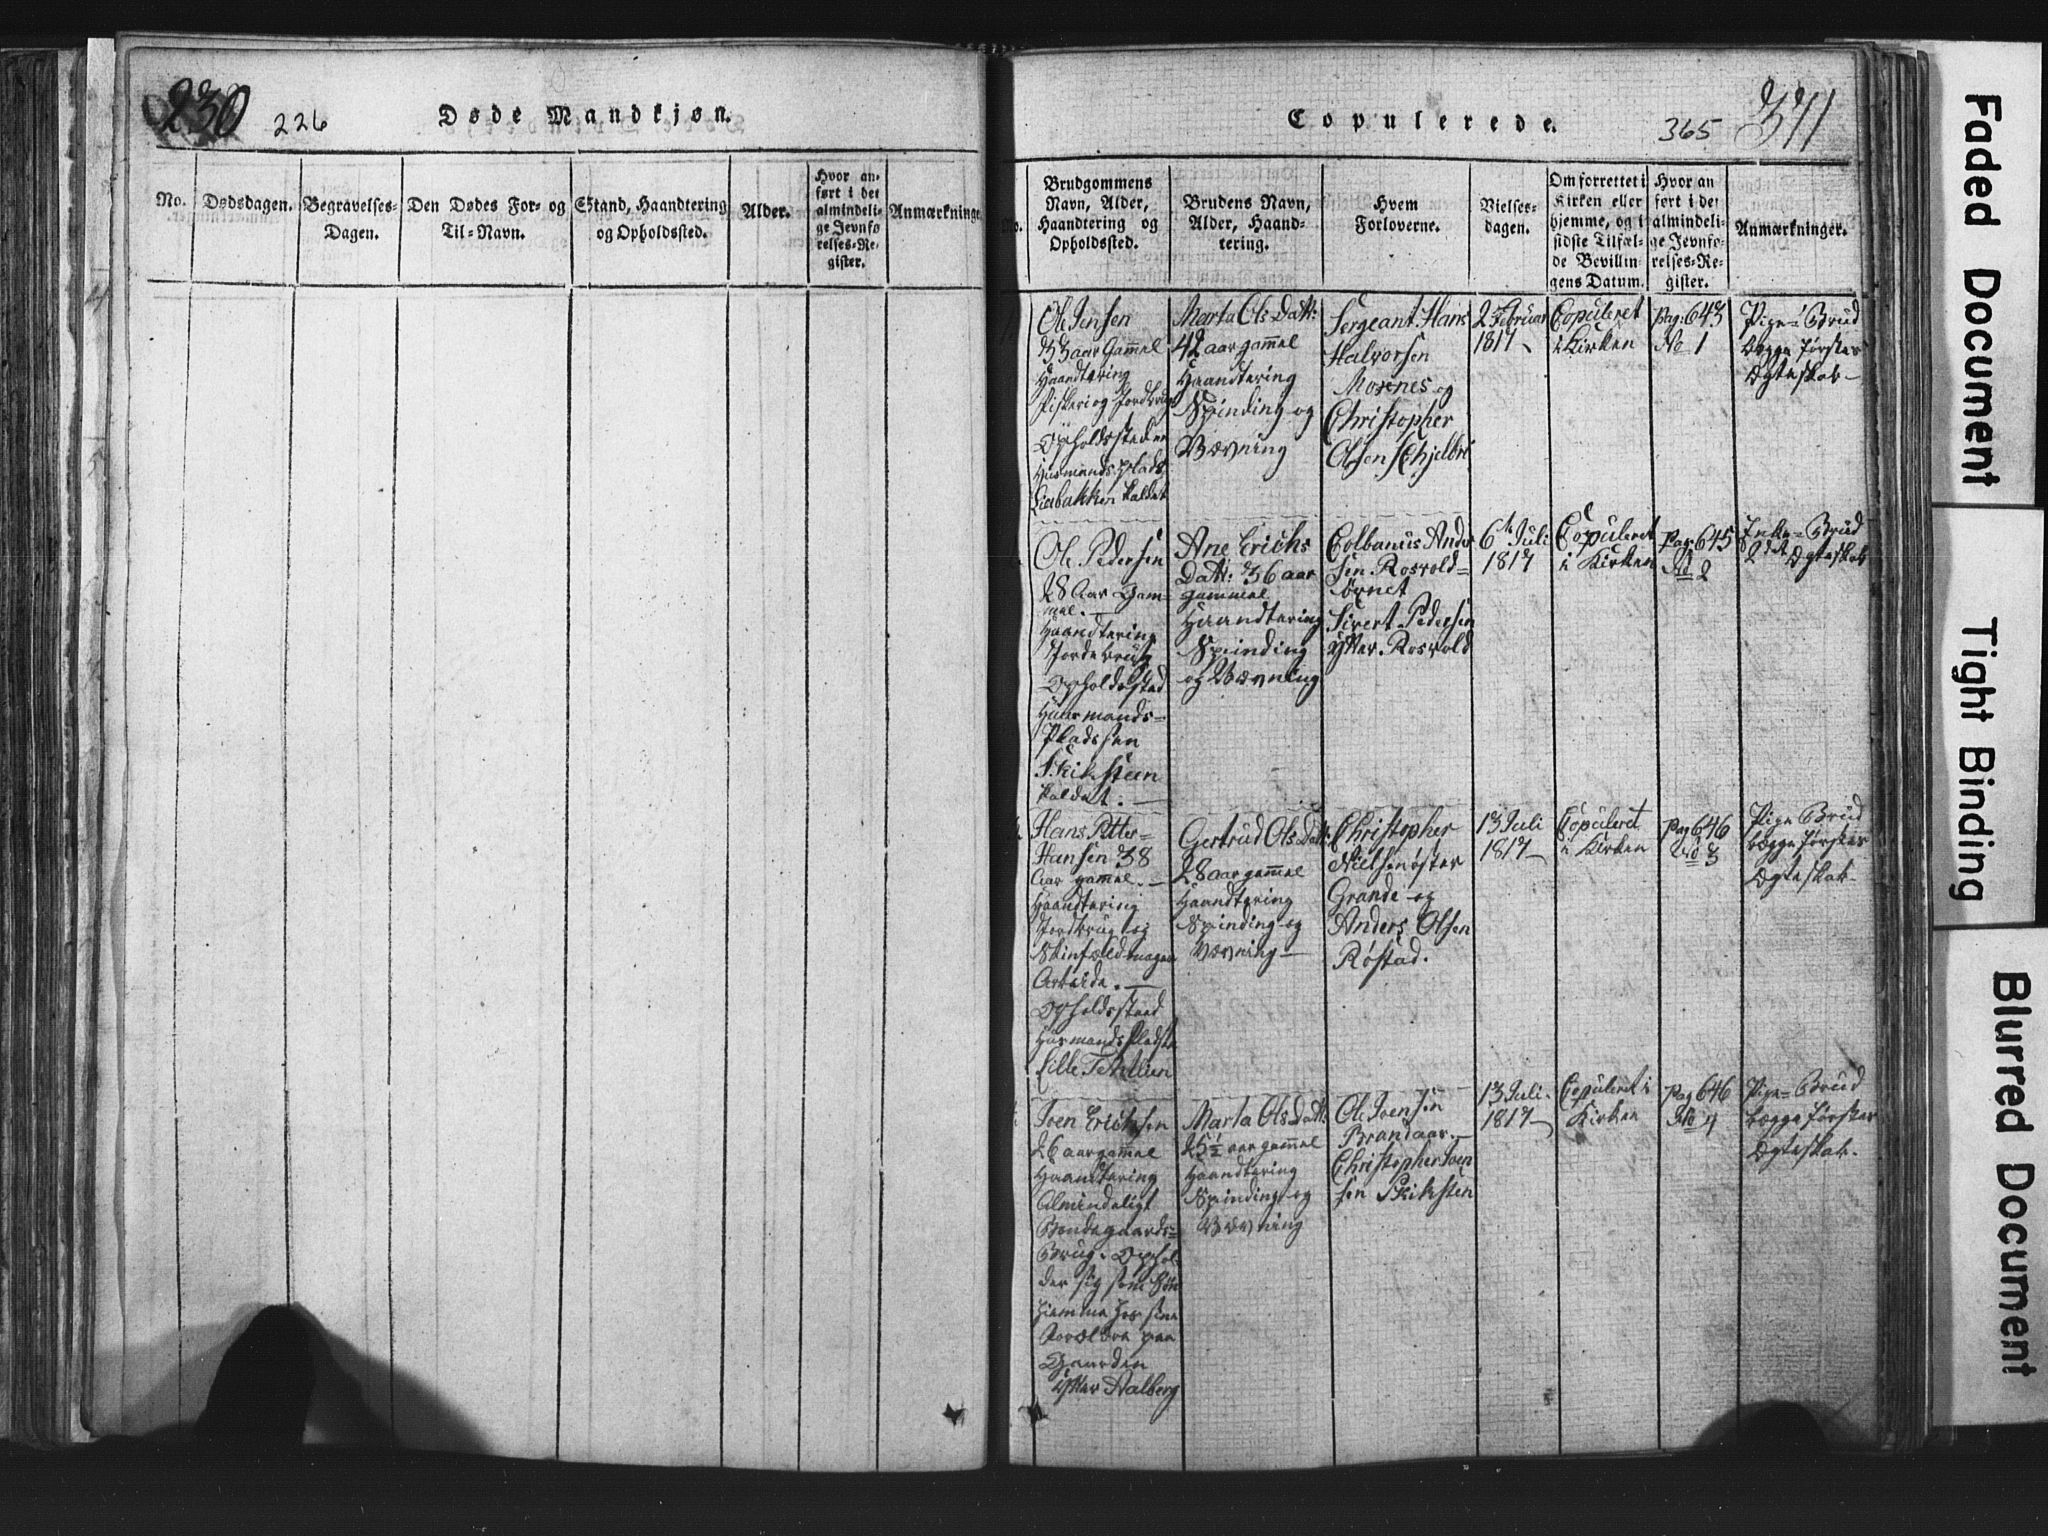 230
226
Døde Mandkjøn.
No.
Dødsdagen.
Begravelses-
Dagen.
Den Dødes For- og
Til-Navn.
Stand, Haandtering
og Opholdssted.
Alder.
Hvor an-
ført i det
almindeli-
ge Jevnfø
relses-Re-
gister.
Anmærkninge
Copulerede.
365
371
No.
Brudgommens
Navn, Alder,
Haandtering og
Opholdssted.
Brudens Navn,
Alder, Haand-
tering.
Hvem
Forloverne.
Vielses-
dagen.
Om forrettet i
Kirken eller
hjemme, og i
sidste Tilfæl-
de Bevillin-
gens Datum.
Hvor an
ført i det
almindeli-
ge Jevnfø-
relses-Re-
gister.
Anmærkninger.
Ole Jensen
33 aar Gammel
Haandtering
Fiskeri og Jordbrug
Opholdssteder
Husmandsplads
Liabakken kaldet
Marta Ols Datt:
42 aar gammel
Haandtering
Spinding og
Vævning
Sergeant Hans
Halvorsen
Mosenes og
Christopher
Olsen
2 Februar
1817
Copuleret
i Kirken
Pag: 643
No 1
Pige-Brud
begge første
Ægteskab-
Ole Pedersen
28 Aar Gam-
mel.
Haandtering
Jordebrug
Opholdssted
Huusmands-
Pladssen
Skiksteen
kaldet.
Ane Erichs
Datt: 36 aar
gammel
Haandtering
Spinding
og Vævning
Colbanus Ander
sen Rosvold-
Sivert Pedersen
Ytter Rosvold
6te Juli
1817
Copuleret
i Kirken
Pag: 645
No 2
Enke-Brud
2det Ægteskab
Hans Petter-
Hansen 38
Aar gamel.
Haandtering
Jordbrug og
Skinfeld-mager
Arbeide.
Opholdssted
Husmands Pladsen
Lille
Gertrud Ols Datt:
28 aar gammel
Haandtering
Spinding og
Vævning
Christopher
Nielsen øster
Grande og
Anders Olsen
Røstad.
13 Juli
1817
Copuleret
i Kirken
Pag 646
No 3
Pige Brud
begge første
Ægteskab-
Iven Erichsen
26 aar gamel
Haandtering
Almindeligt
Bondegaards-
Brug. Ophol-
der sig som Søn
hiemme hos sine
Forældre paa
Gaarden
Ytter Aalberg
Marta Ols Datt:
25½ aar gammel
Haandtering
Spinding og
Vævning
Ole Ivensen
Brandaas.
Christopher Iven
sen Skiksten
13 Juli.
1817
Copuleret i
Kirken
Pag 646
No 4
Pige-Brud
begge første
Ægteskab.
Faded Document
Tight Binding
Blurred Document